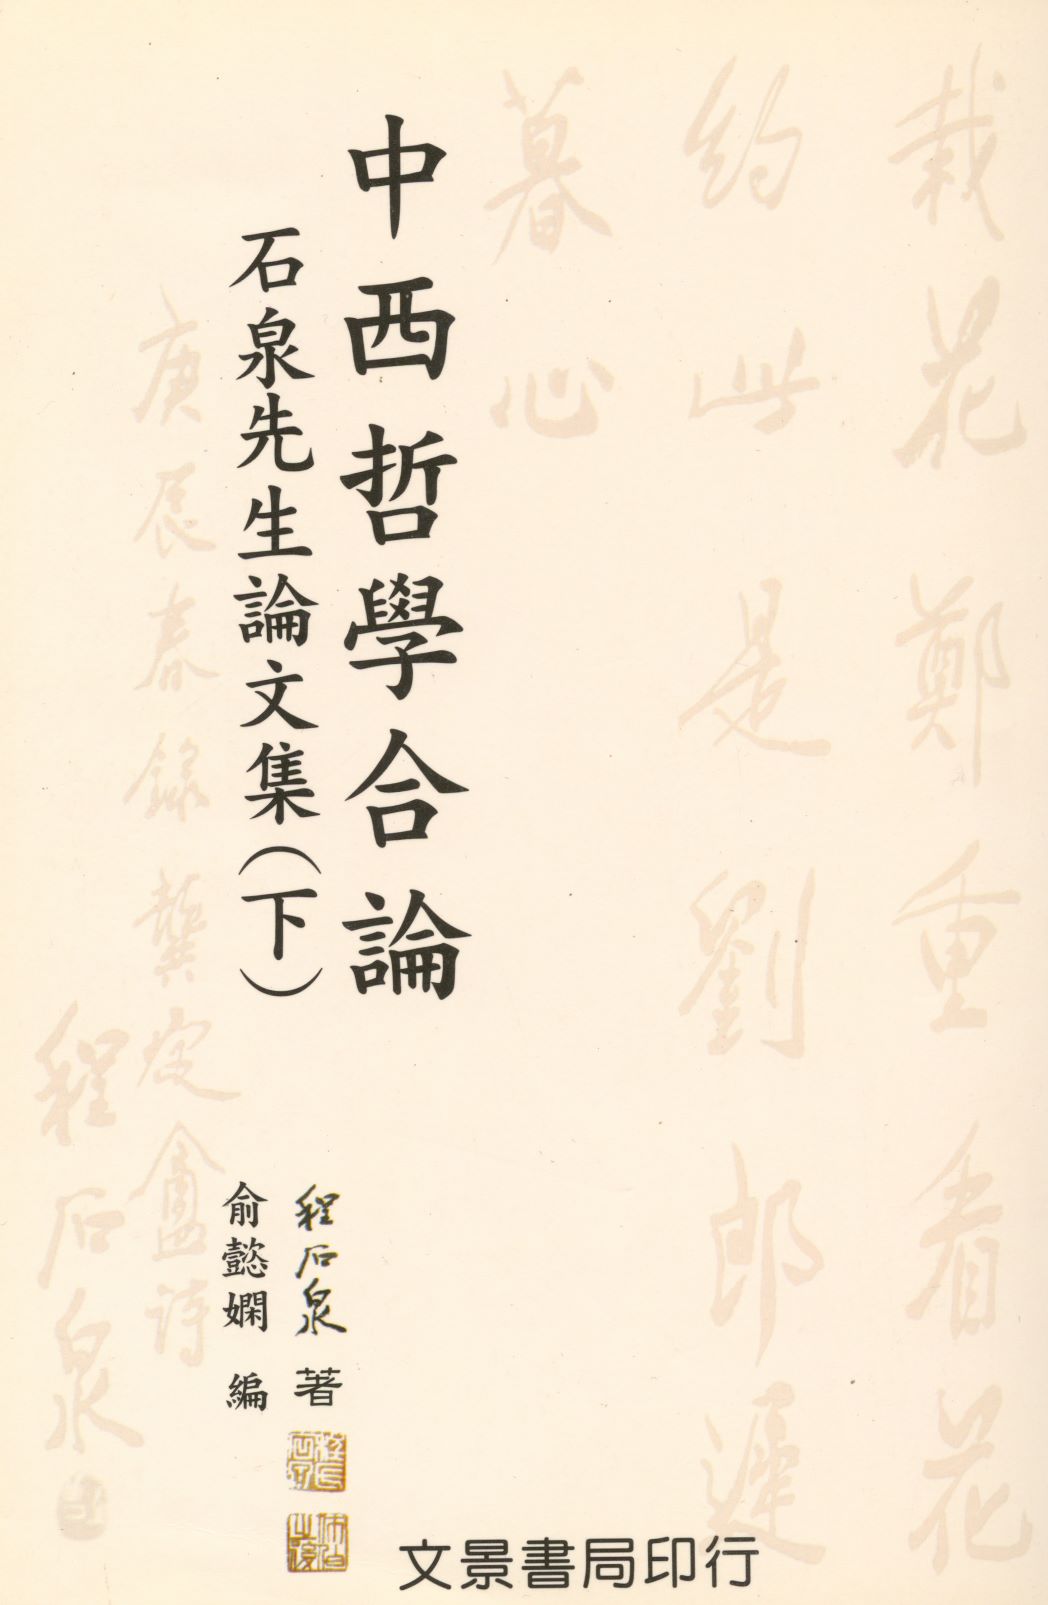 栽花鄭重看花
約此是劉郎遲
暮心
中西哲學合論
石泉先生論文集(下)
庚辰春錄龔定盦詩
程石泉
程石泉 著
俞懿嫻 編
文景書局印行